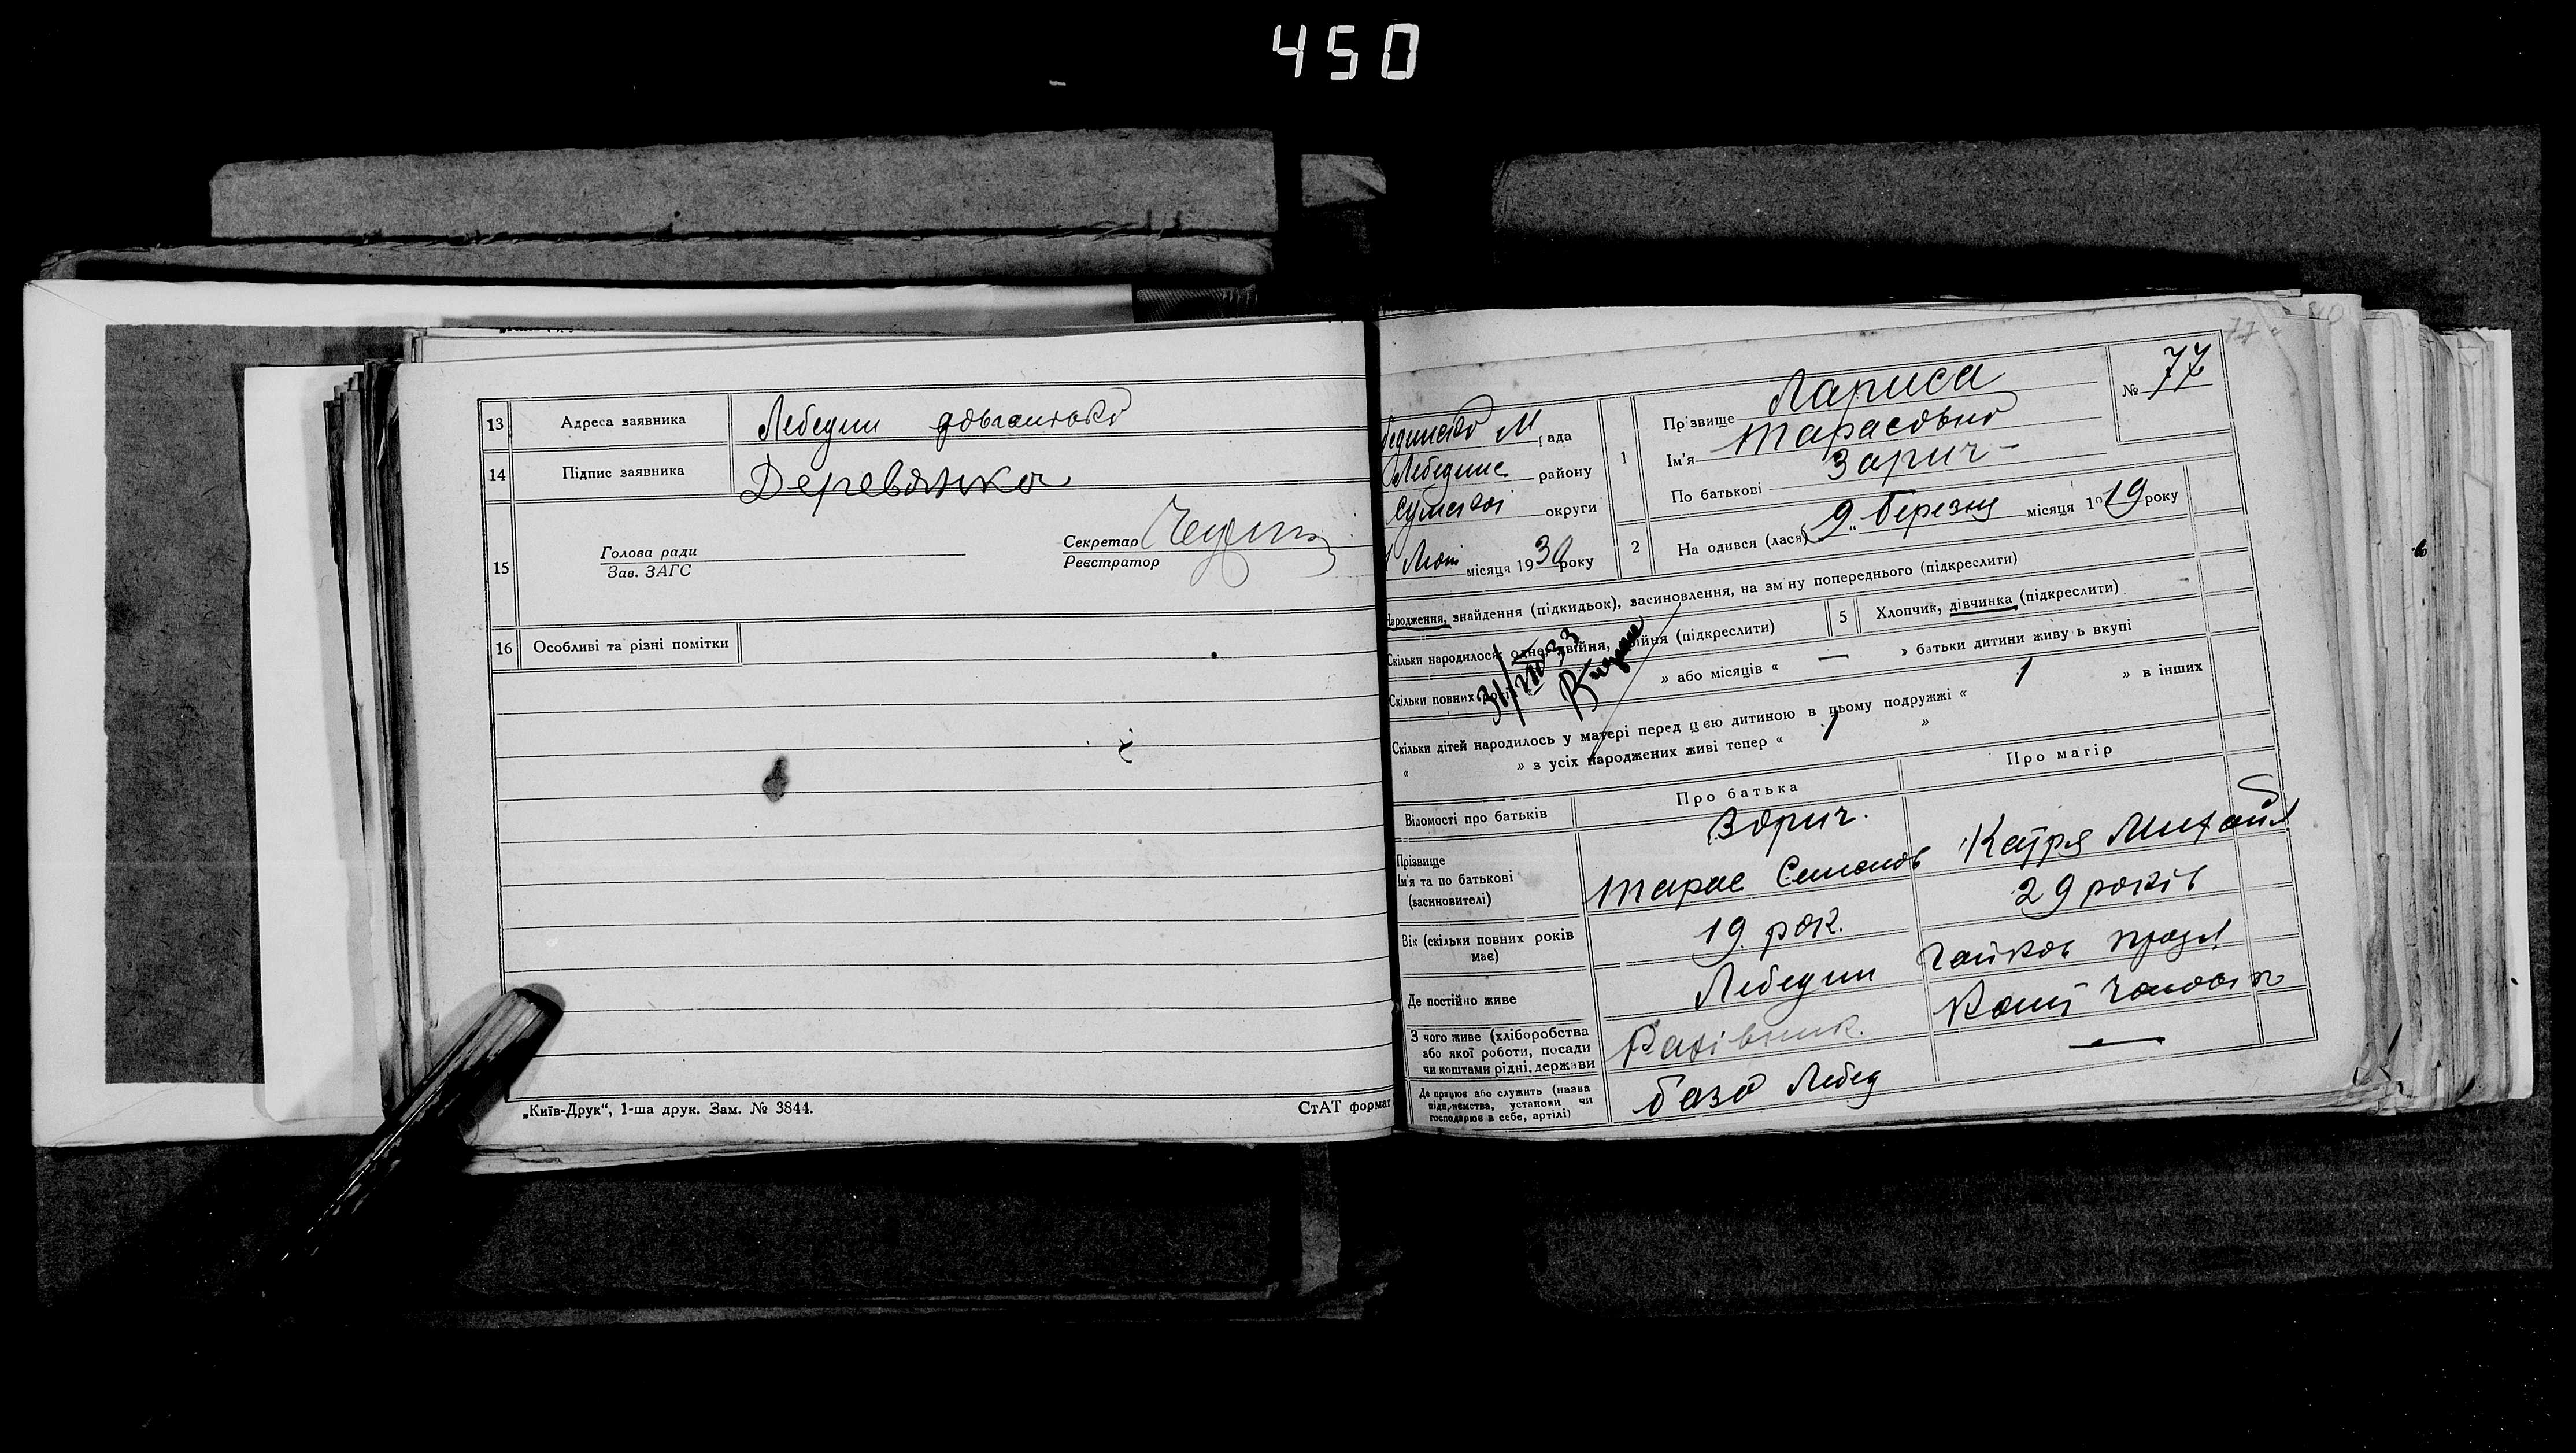 450
13 Адреса заявника Лебедин
14 Підпис заявника Деревянко
15 Голова ради
Зав. ЗАГС
Секретар
Реєстратор
16 Особливі та різні помітки
„Київ-Друк“, 1-ша друк. Зам. № 3844.
СтАТ формат
77
№ 77
М рада
Лебединс району
Сумської округи
місяця 1930 року
1 Прізвище Лариса
Ім'я Тарасовно
По батькові Зорич
2 На одився (лася) „9„ березня місяця 1919 року
Народження, знайдення (підкидьок), засиновлення, на зміну попереднього (підкреслити)
Скільки народилося: одно, двійня, трійня (підкреслити)
5 Хлопчик, дівчинка (підкреслити)
31/VIII 33
Скільки повних років » або місяців « — » батьки дитини живуть вкупі
Скільки дітей народилось у матері перед цією дитиною в цьому подружжі « 1 » в інших
« » з усіх народжених живі тепер « 1 »
Відомості про батьків
Про батька
Про матір
Прізвище
Ім'я та по батькові
(засиновителі)
Зорич.
Тарас Семенов
Катря Михайл
Вік (скільки повних років має)
19 рок.
29 років
Де постійно живе
Лебедин
З чого живе (хліборобства або якої роботи, посади чи коштами рідні, держави
Рахівник.
Кошт чоловік
Де працює або служить (назва підприємства, установи чи господарює в себе, артілі)
база Лебед
—